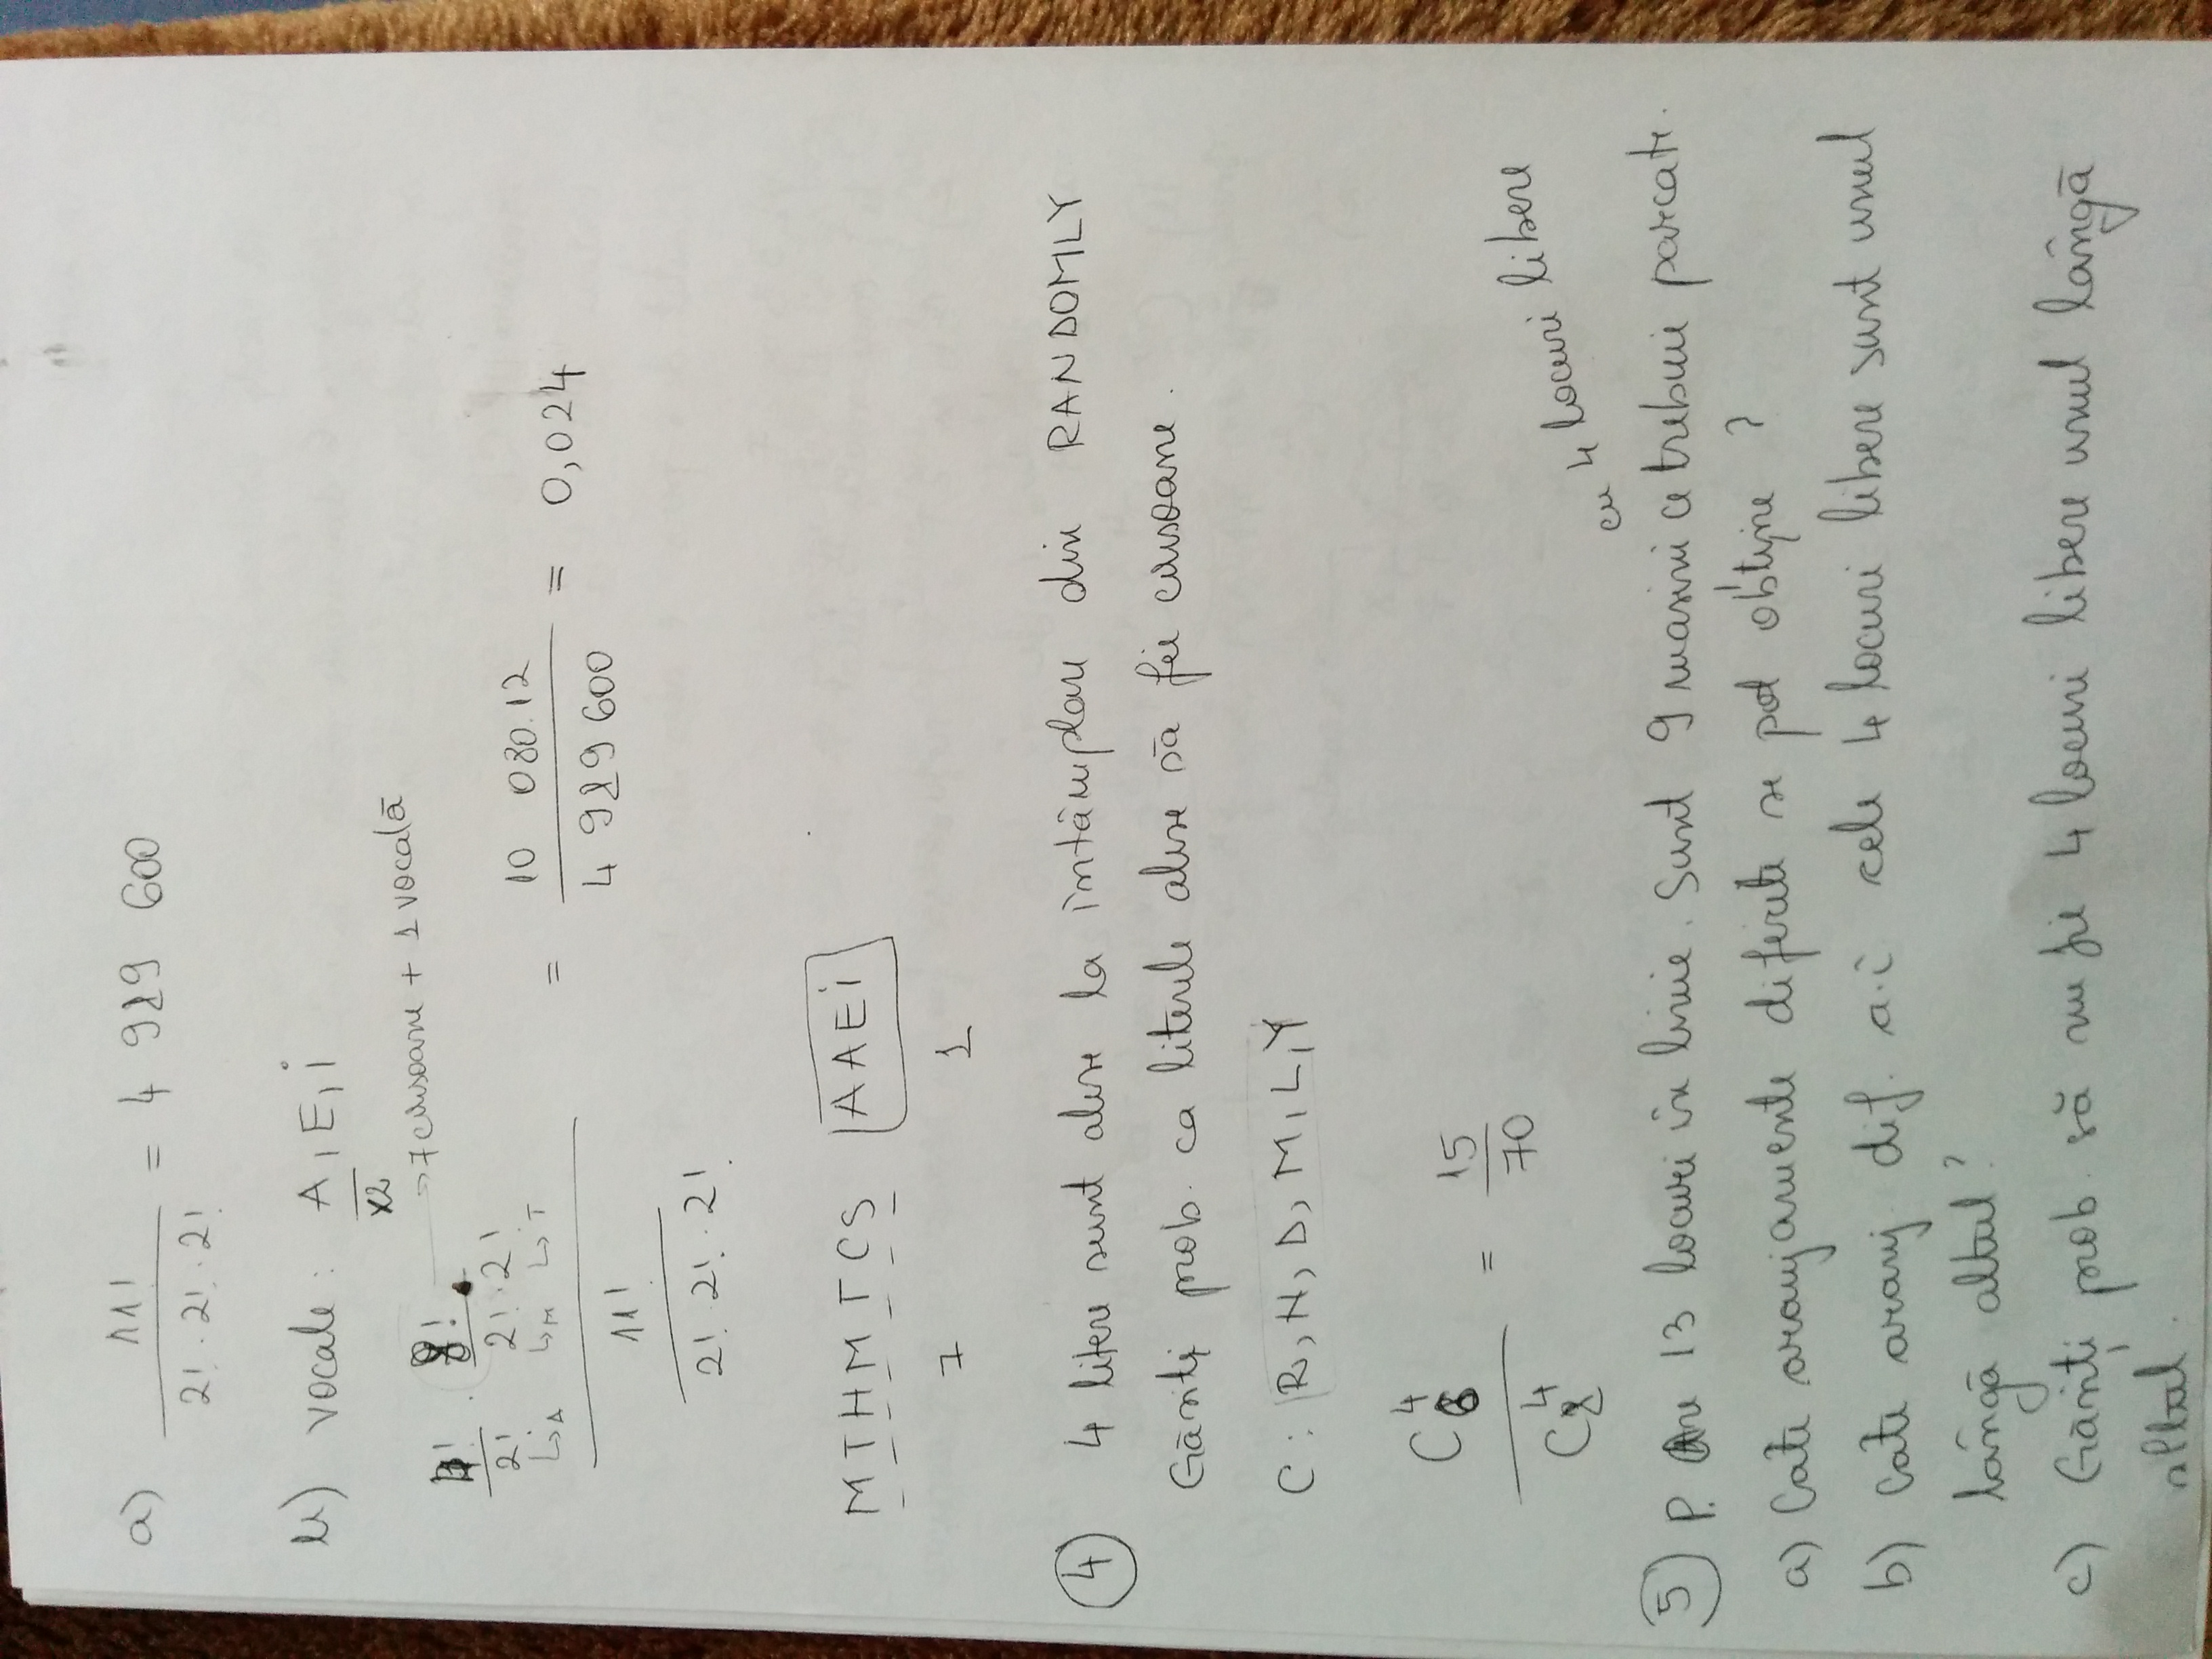 a) 11! / 2! · 2! · 2! = 4 989 600
b) vocale: A, E, i
x2
→ 7 consoane + 1 vocală
4!/2! · 8!/2! · 2!
↳A ↳M ↳T
11! / 2! · 2! · 2!
= 10 080 · 12 / 4 989 600 = 0,024
M T H M T C S AAEi
7 1
④ 4 litere sunt alese la întâmplare din RANDOMLY
Găsiți prob. ca literele alese să fie consoane.
C: R, N, D, M, L, Y
C₆⁴ / C₈⁴ = 15/70
cu 4 locuri libere
⑤ P. Are 13 locuri în linie. Sunt 9 masini ce trebuie parcate.
a) Cate aranjamente diferite se pot obține ?
b) Cate aranj. dif. a.î cele 4 locuri libere sunt unul
lângă altul ?
c) Găsiți prob. să nu fie 4 locuri libere unul lângă
altul.